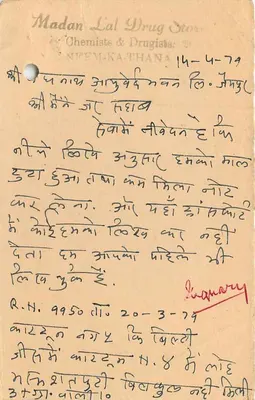 Madan Lal Drug Store
Chemists & Druggists
NEEM-KA-THANA
14-4-79
श्री बैद्यनाथ आयुर्वेद भवन लि. जयपुर
श्री मैनेजर साहब
सेवामें निवेदन है कि
नीचे लिखे अनुसार हमको माल
टुटा हुआ तथा कम मिला नोट
कर लेना. और यहाँ ट्रांसपोर्ट
में कोई हमको लिख कर नहीं
देता हम आपको पहिले भी
लिख चुके हैं.
R.N. 9950 ता. 20-3-79
कारटून नग ५ कि बिल्टी
जीसमें कारटून N. ४ में लोह
बिलकुल नही मिली
३ ग्रा. वाली।